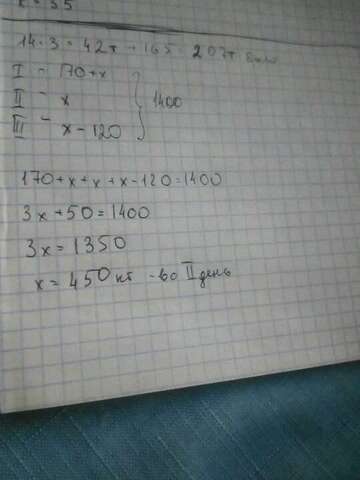 x = 35
14·3 = 42т + 165 = 207т было
I - 170+x
II - x
III - x-120
1400
170+x+x+x-120=1400
3x+50=1400
3x=1350
x=450 кг - во II день